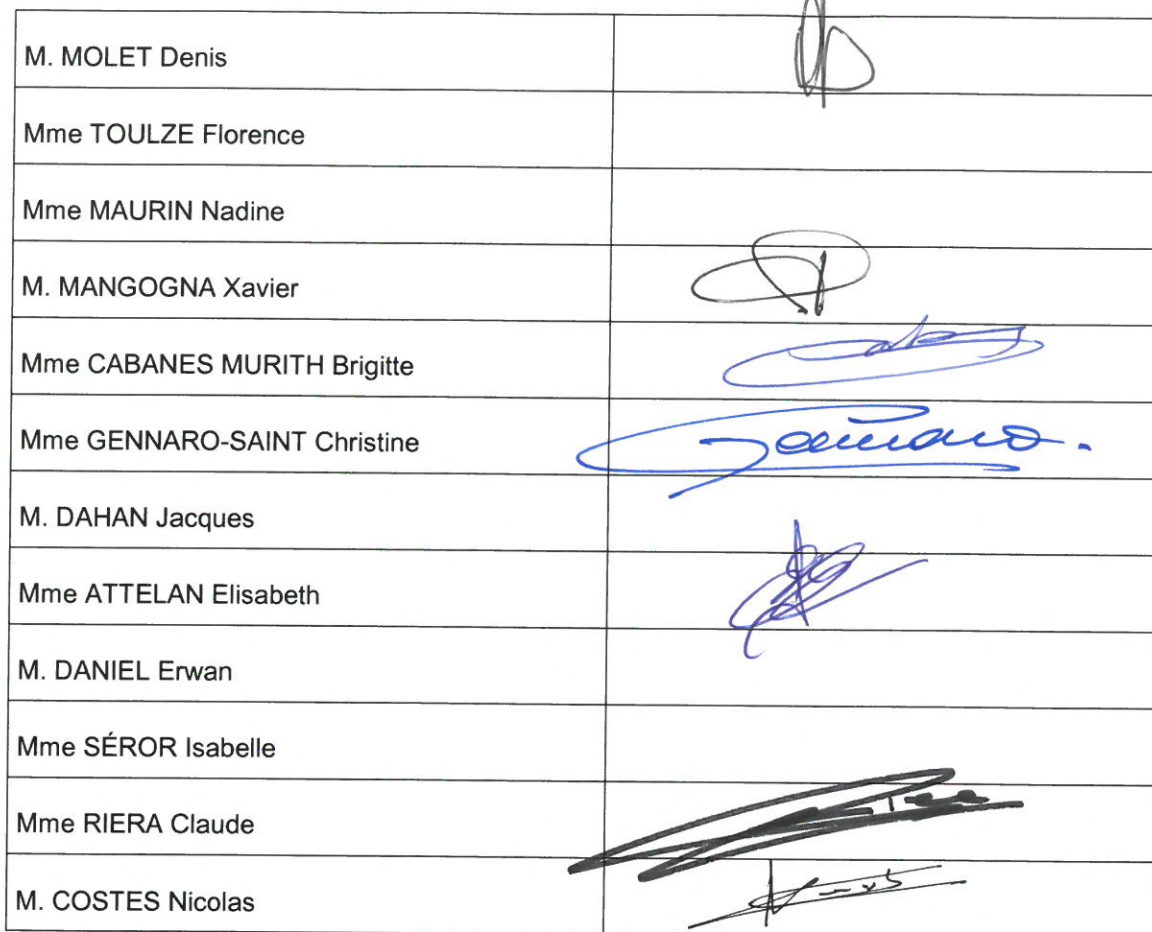 M. MOLET Denis
Mme TOULZE Florence
Mme MAURIN Nadine
M. MANGOGNA Xavier
Mme CABANES MURITH Brigitte
Mme GENNARO-SAINT Christine
Gennaro.
M. DAHAN Jacques
Mme ATTELAN Elisabeth
M. DANIEL Erwan
Mme SÉROR Isabelle
Mme RIERA Claude
M. COSTES Nicolas